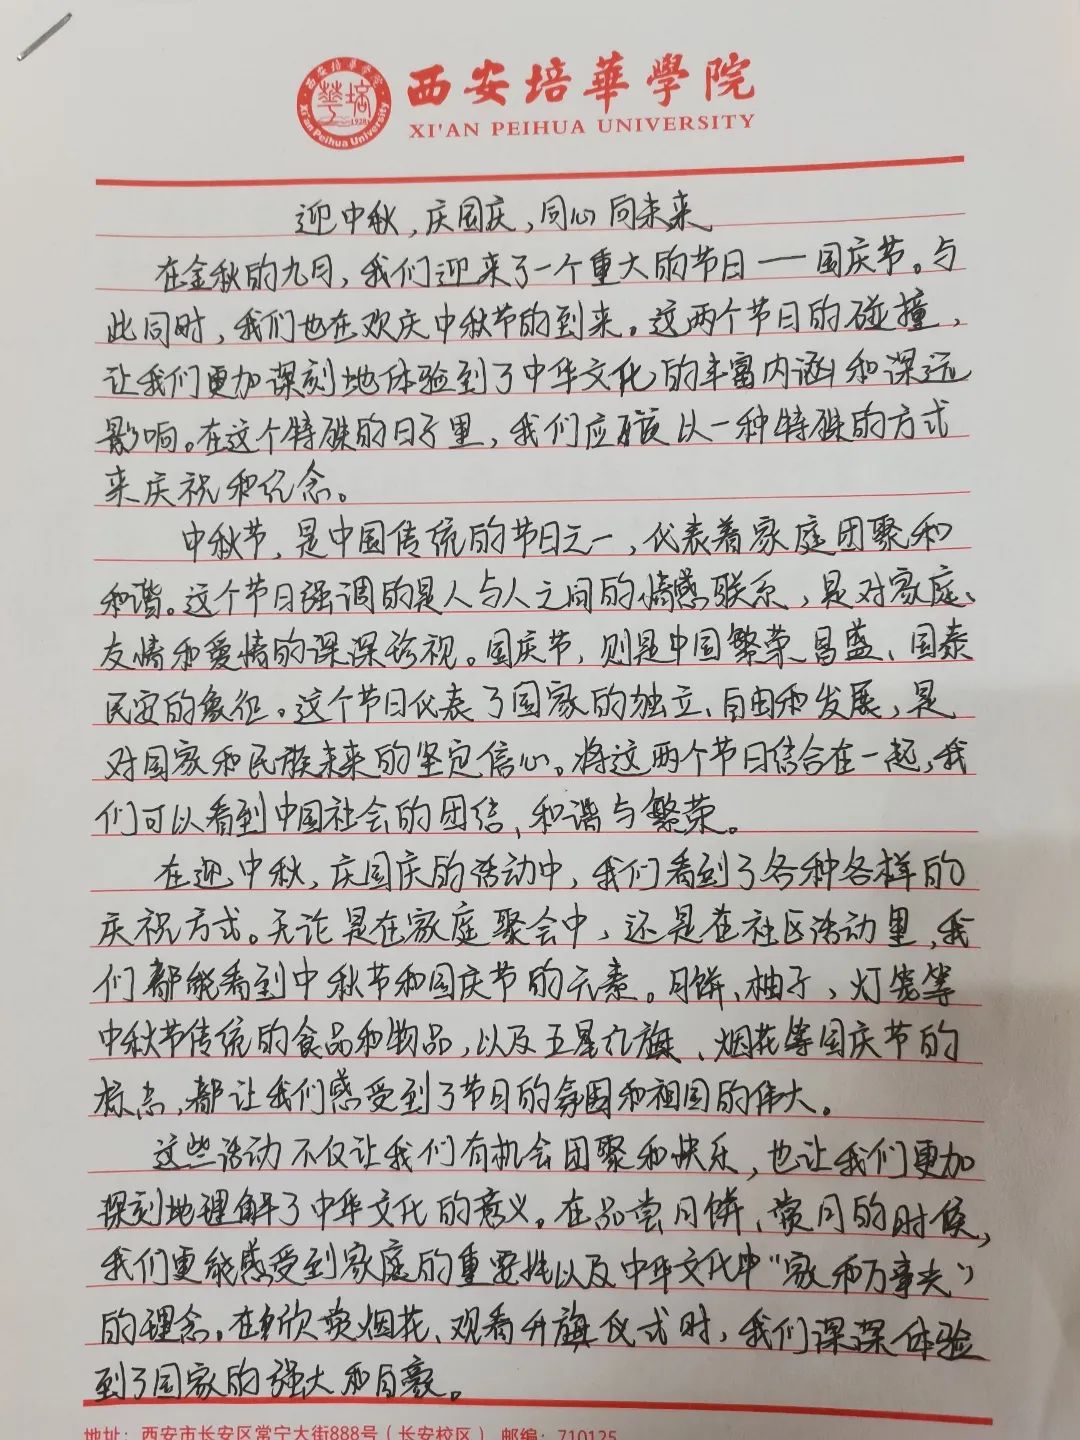 西安培華學院
XI'AN PEIHUA UNIVERSITY
西安培華学院
培華
1928
Xi'an Peihua University
迎中秋,庆国庆,同心向未来
在金秋的九月,我们迎来了一个重大的节日——国庆节。与
此同时,我们也在欢庆中秋节的到来。这两个节日的碰撞,
让我们更加深刻地体验到了中华文化的丰富内涵和深远
影响。在这个特殊的日子里,我们应该以一种特殊的方式
来庆祝和纪念。
中秋节,是中国传统的节日之一,代表着家庭团聚和
和谐。这个节日强调的是人与人之间的情感联系,是对家庭、
友情和爱情的深深珍视。国庆节,则是中国繁荣昌盛、国泰
民安的象征。这个节日代表了国家的独立、自由和发展,是
对国家和民族未来的坚定信心。将这两个节日结合在一起,我
们可以看到中国社会的团结、和谐与繁荣。
在迎中秋,庆国庆的活动中,我们看到了各种各样的
庆祝方式。无论是在家庭聚会中,还是在社区活动里,我
们都能看到中秋节和国庆节的元素。月饼、柚子,灯笼等
中秋节传统的食品和物品,以及五星红旗、烟花等国庆节的
标志,都让我们感受到了节日的氛围和祖国的伟大。
这些活动不仅让我们有机会团聚和快乐,也让我们更加
深刻地理解了中华文化的意义。在品尝月饼、赏月的时候,
我们更能感受到家庭的重要性以及中华文化中“家和万事兴”
的理念。在欣赏烟花、观看升旗仪式时,我们深深体验
到了国家的强大和自豪。
地址:西安市长安区常宁大街888号(长安校区) 邮编:710125